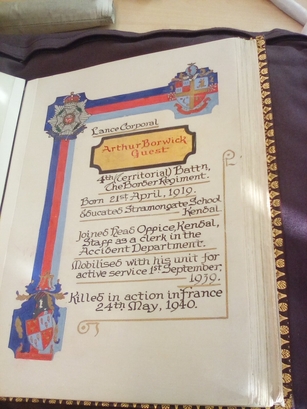 Lance Corporal
Arthur Borwick
Guest
4th (Territorial) Battn,
The Border Regiment.
Born 21st April, 1919.
Educated Stramongate School
Kendal.
Joined Head Office, Kendal,
Staff as a clerk in the
Accident Department.
Mobilised with his unit for
active service 1st September,
1939.
Killed in action in France
24th May, 1940.